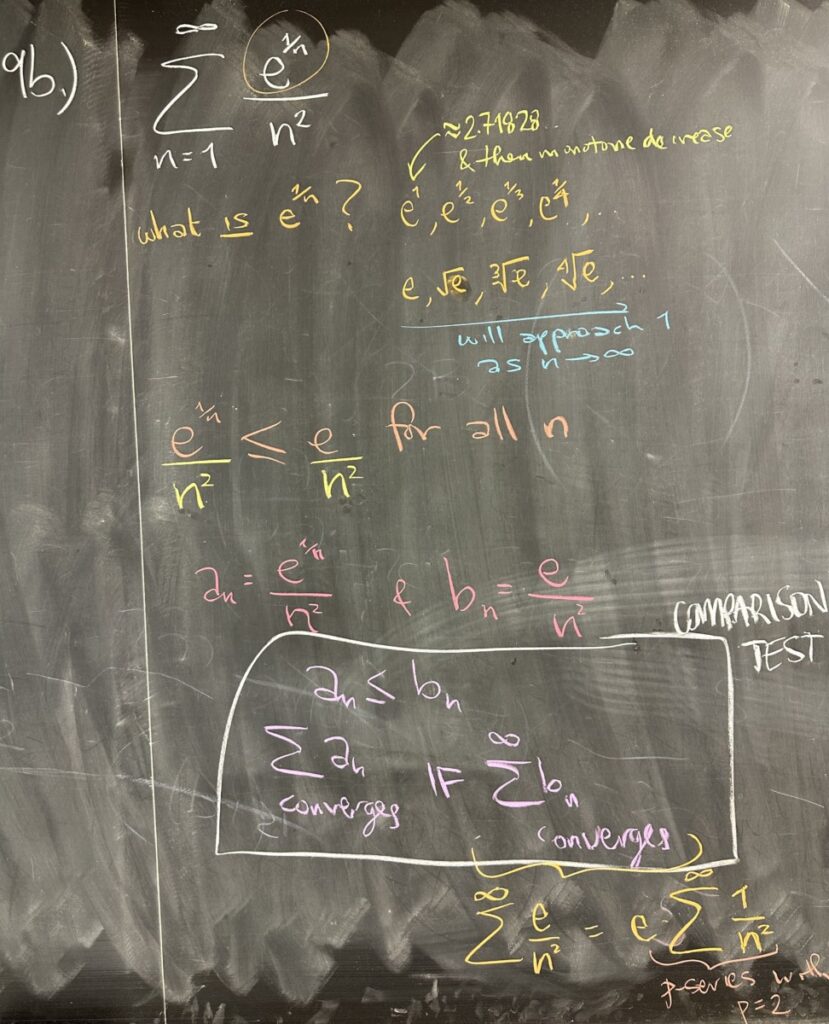 9b.) ∞
∑ e^{1/n} / n²
n=1
≈2.71828..
& then monotone decrease
what is e^{1/n} ? e¹, e^{1/2}, e^{1/3}, e^{1/4}, ..
e, √e, ∛e, ∜e, ...
will approach 1
as n→∞
e^{1/n} / n² ≤ e / n² for all n
a_n = e^{1/n} / n² & b_n = e / n²
COMPARISON
TEST
a_n ≤ b_n
∑ a_n converges IF ∞ ∑ b_n converges
∞ ∑ e / n² = e ∞ ∑ 1 / n²
p-series with
p=2